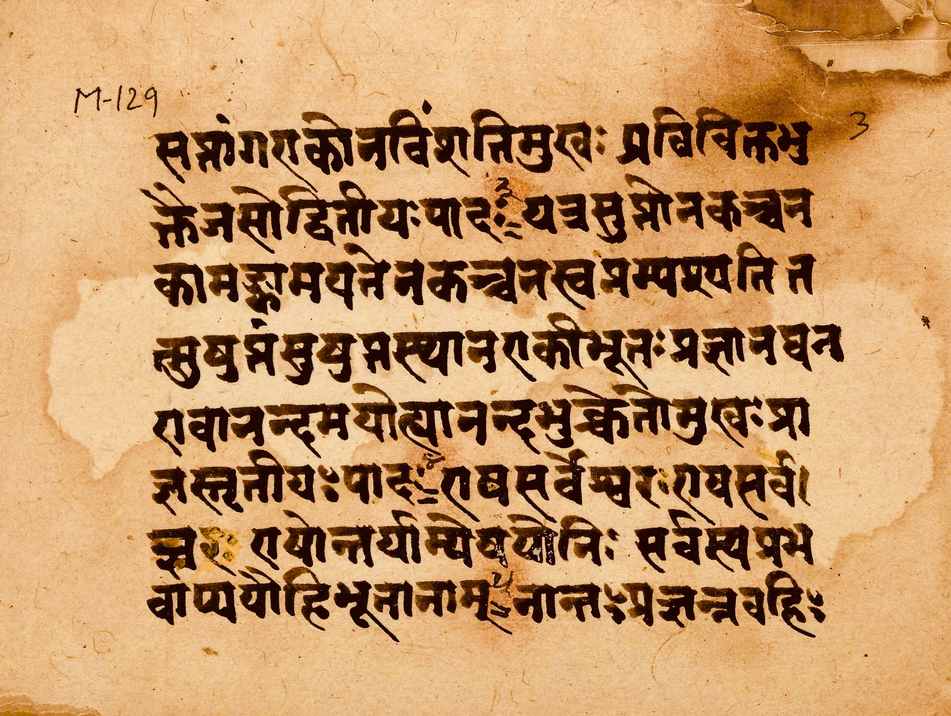 M-129
3
सप्तांगएकोनविंशतिमुखः प्रविविक्तभु
क्तैजसोद्वितीयःपादः ३ यत्रसुप्तोनकच्चन
कामङ्कामयतेनकच्चनस्वप्नम्पश्यतित
त्सुषुप्तंसुषुप्तस्थानएकीभूतःप्रज्ञानघन
एवानन्दमयोत्यानन्दभुक्चेतोमुखःप्रा
ज्ञस्तृतीयःपादः ४ एषसर्वेश्वरःएषसर्व।
ज्ञः एषोन्तर्याम्येषयोनिः सर्वस्यप्रभ
वाप्ययौहिभूतानाम् ५ नान्तःप्रज्ञन्नवहिः